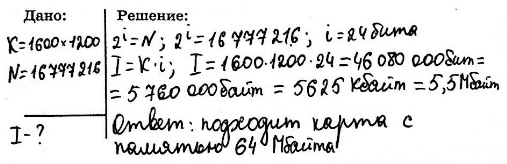 Дано:
K=1600×1200
N=16777216
I-?
Решение:
2^i=N; 2^i=16 777 216; i=24бита
I=K·i; I=1600·1200·24=46 080 000бит=
=5 760 000байт = 5625 Кбайт =5,5Мбайт
Ответ: подходит карта с
памятью 64 Мбайта